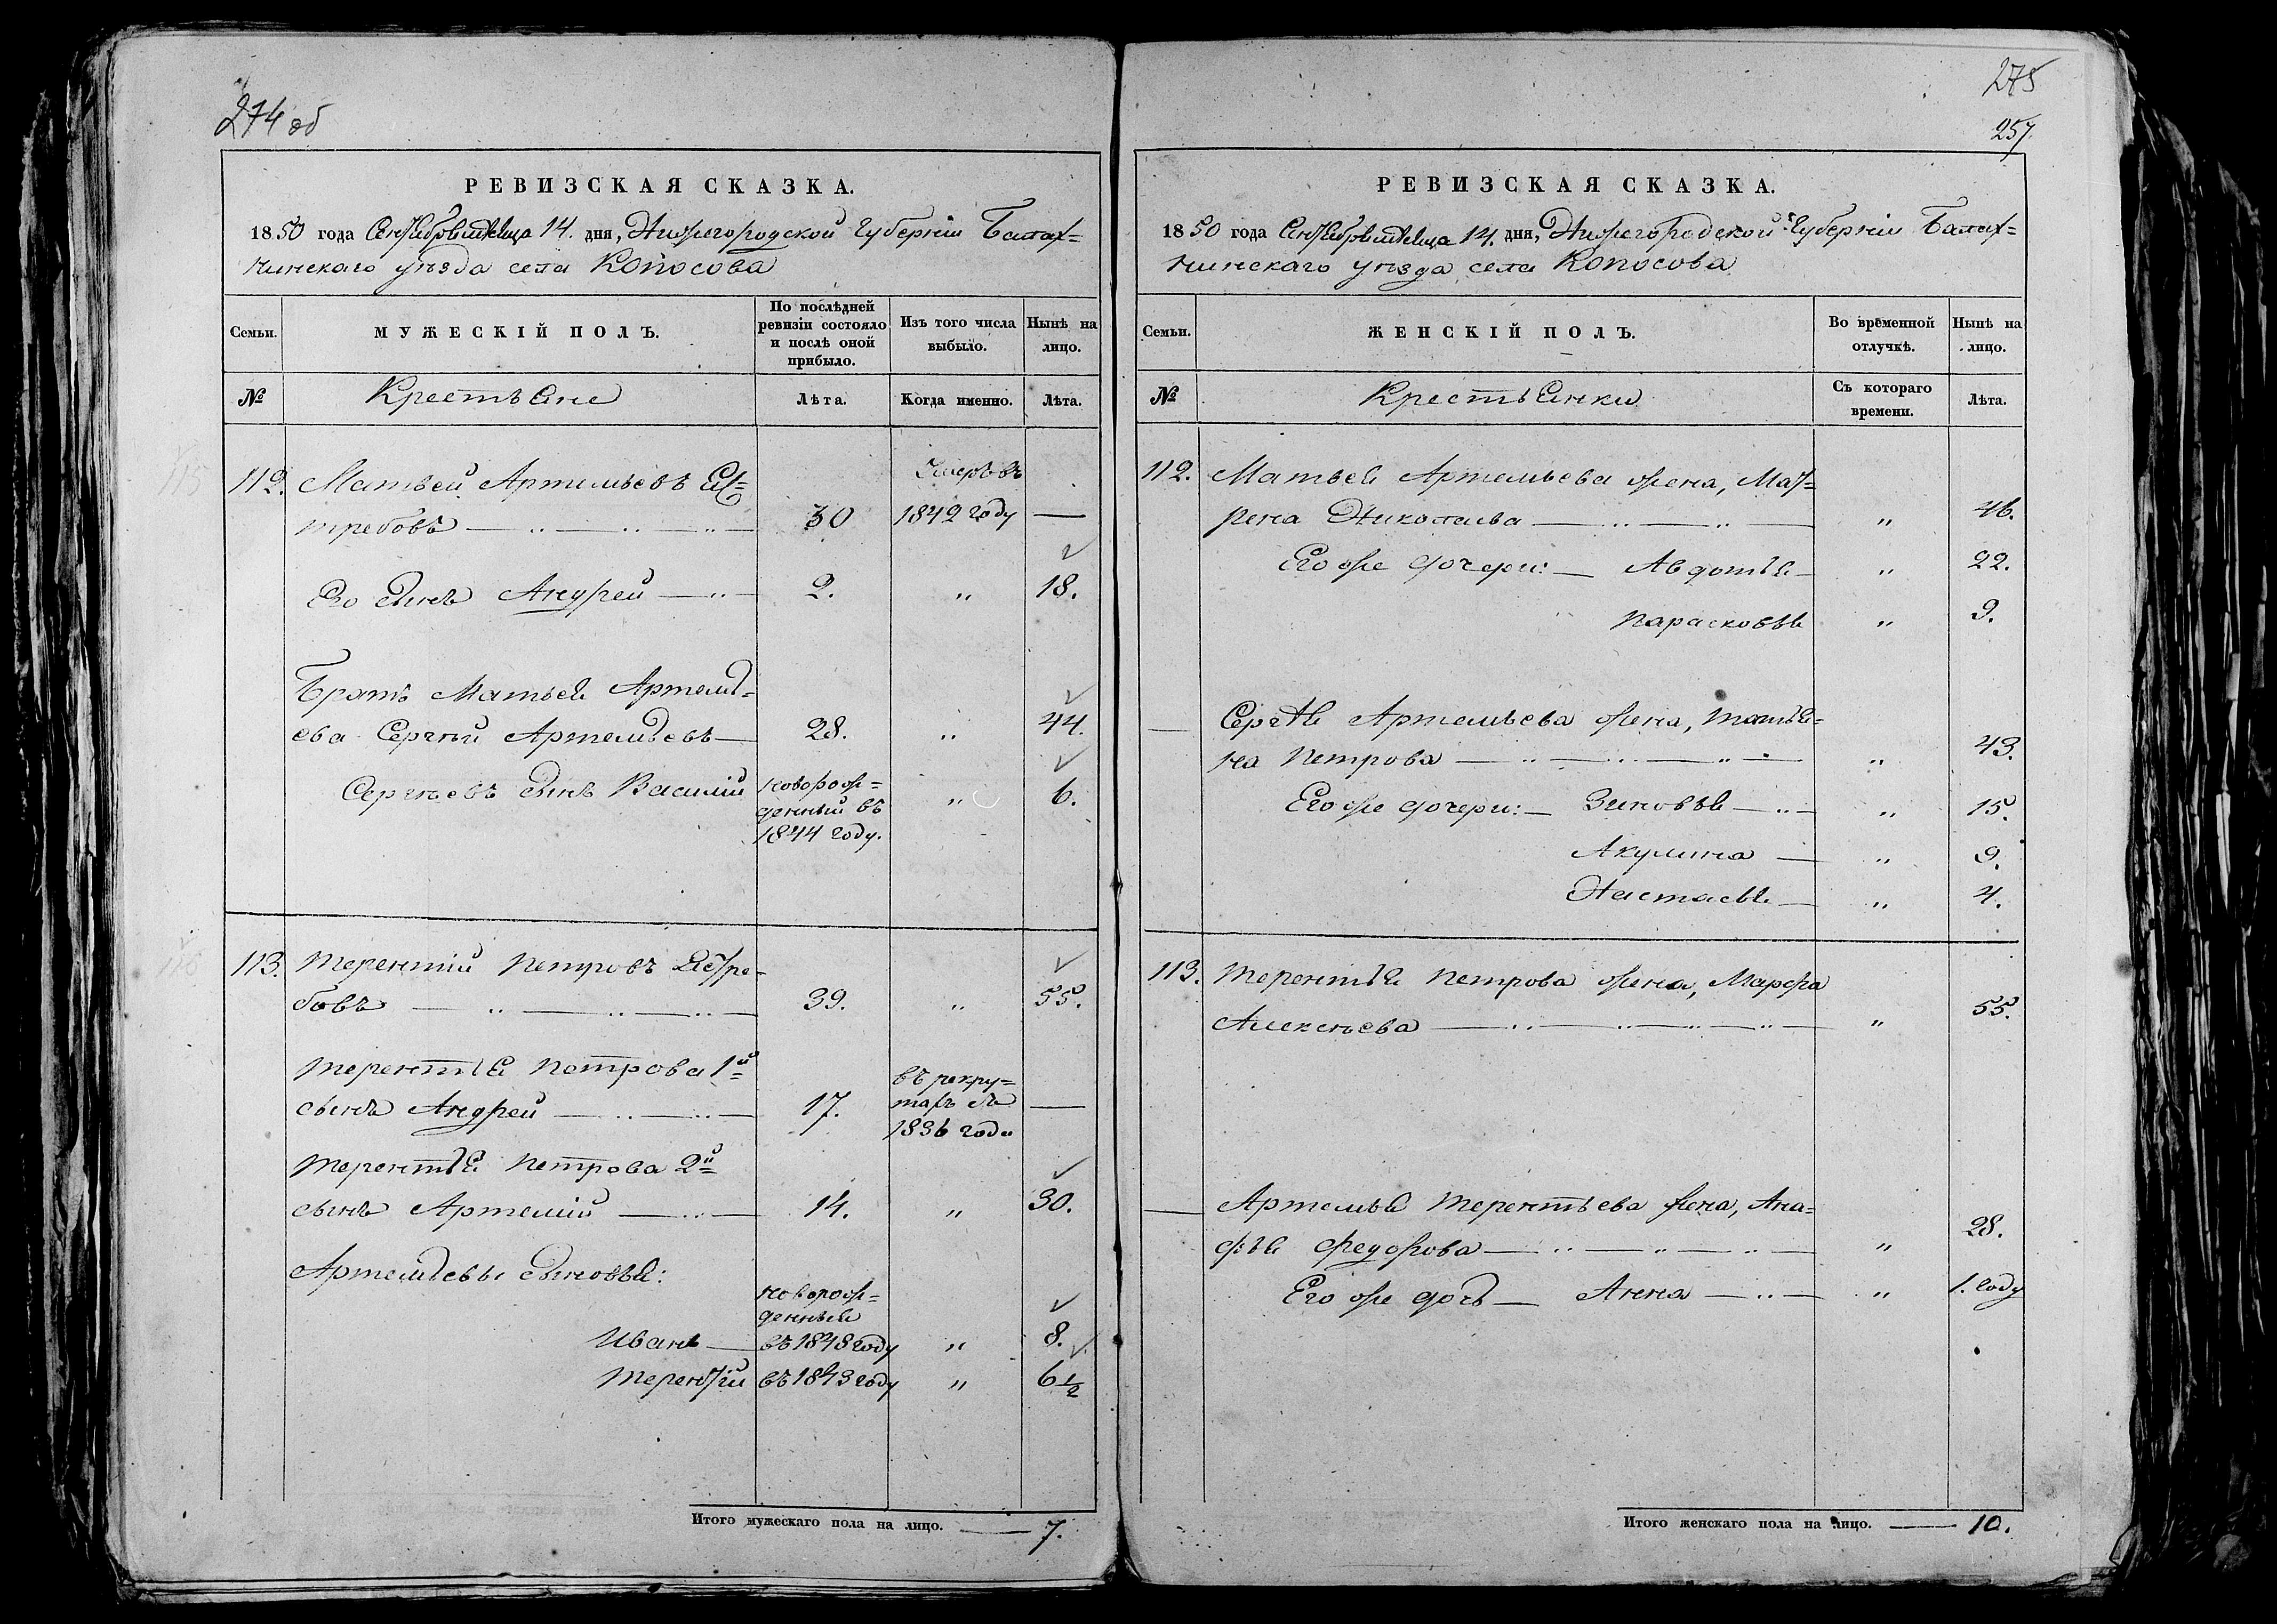 274 об
РЕВИЗСКАЯ СКАЗКА.
1850 года Сентября месяца 14. дня, Нижегородской Губернiи Балах=
нинскаго уѣзда села Копосова
Семьи.
МУЖЕСКIЙ ПОЛЪ.
По послѣдней ревизiи состояло и послѣ оной прибыло.
Изъ того числа выбыло.
Нынѣ на лицо.
№
Крестьяне
Лѣта.
Когда именно.
Лѣта.
115
112. Матвей Артемьевъ Яс=
требовъ 30 Умеръ въ 1842 году —
Его сынъ Андрей 2. " 18.
Братъ Матвея Артемь=
ева Сергѣй Артемьевъ 28. " 44.
Сергѣевъ сынъ Василiй новорож=
денный въ
1844 году. " 6.
116
113. Терентiй Петровъ Ястре-
бовъ 39. " 55.
Терентiя Петрова 1й
сынъ Андрей 17. въ рекру=
тахъ съ
1836 года —
Терентiя Петрова 2й
сынъ Артемiй 14. " 30.
Артемьевы сыновья:
новорож=
денные
Иванъ въ 1848 году " 8.
Терентiй въ 1843 году " 6 1/2
Итого мужескаго пола на лицо. — 7.
275
257.
РЕВИЗСКАЯ СКАЗКА.
1850 года Сентября месяца 14. дня, Нижегородской Губернiи Балах=
нинскаго уѣзда села Копосова
Семьи.
ЖЕНСКIЙ ПОЛЪ.
Во врѣменной отлучкѣ.
Нынѣ на лицо.
№
Крестьянки
Съ котораго времени.
Лѣта.
112. Матвея Артемьева жена, Мат=
рена Николаева " 46.
Его же дочери: — Авдотья " 22.
Парасковья " 9.
— Сергѣя Артемьева жена, Татья=
на Петрова " 43.
Его же дочери: — Зиновья " 15.
Акулина " 9.
Настасья " 4.
113. Терентiя Петрова жена, Марфа
Алексѣева " 55.
— Артемья Терентьева жена, Ана=
фья Федорова " 28.
Его же дочь — Анна " 1. году
Итого женскаго пола на лицо. — 10.